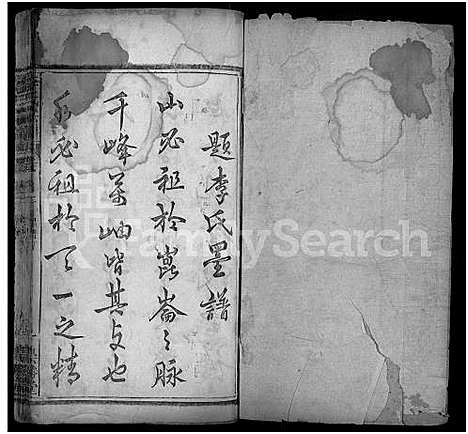 題李氏墨譜
山必祖於崑崙之脉
千峰萬岫皆其支也
水必祖於天一之精
FamilySearch